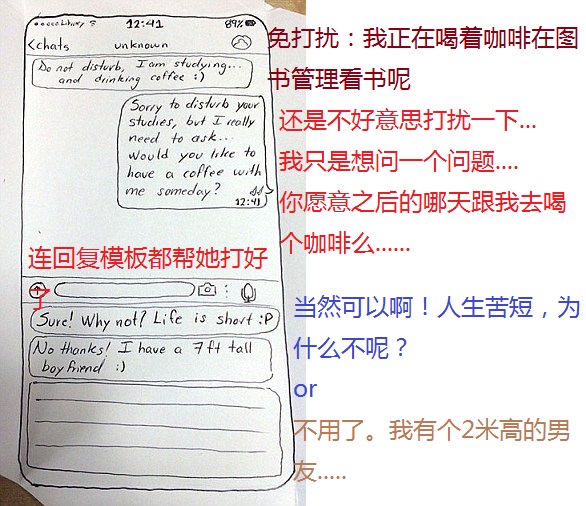 Library 12:41 89%
<chats unknown
Do not disturb, I am studying...
and drinking coffee :)
Sorry to disturb your
studies, but I really
need to ask...
Would you like to
have a coffee with
me someday?
12:41
连回复模板都帮她打好
了
Sure! Why not? Life is short :P
No thanks! I have a 7ft tall
boyfriend :)
免打扰：我正在喝着咖啡在图
书管理看书呢
还是不好意思打扰一下...
我只是想问一个问题....
你愿意之后的哪天跟我去喝
个咖啡么......
当然可以啊！人生苦短，为
什么不呢？
or
不用了。我有个2米高的男
友.....